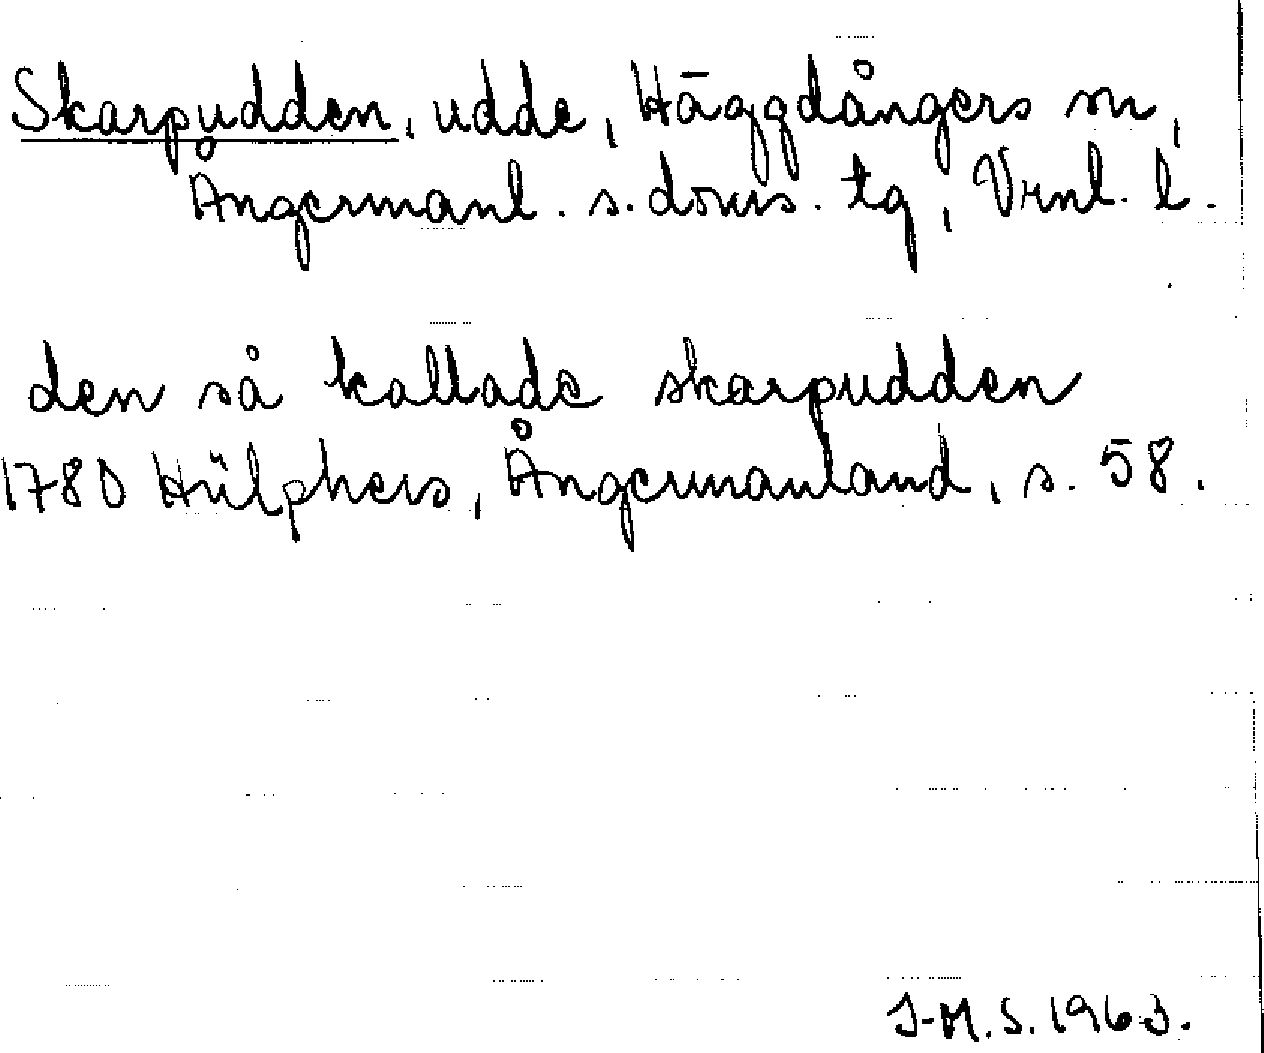 Skarpudden, udde, Häggdångers sn,
Ångermanl. s. doms. tg, Vrnl. l.
den så kallade skarpudden
1780 Hülphers, Ångermanland, s. 58.
J-M.S. 1963.